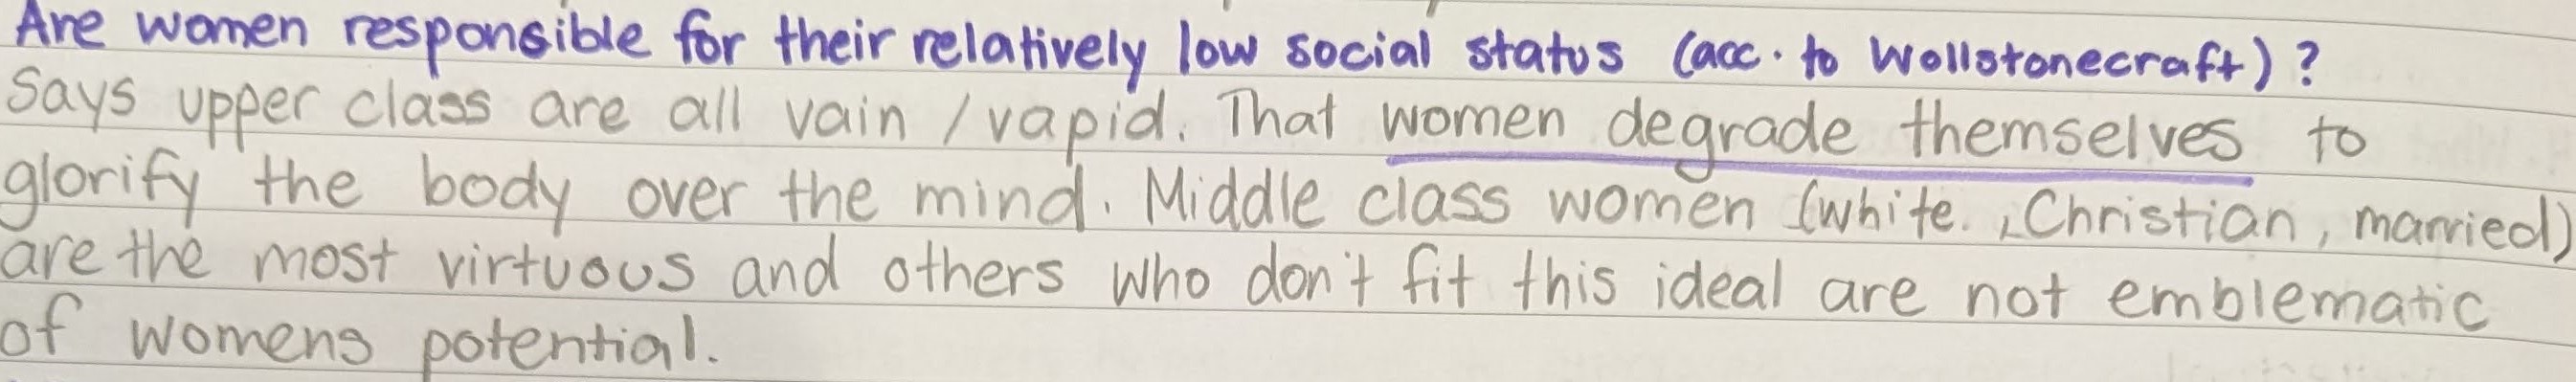 Are women responsible for their relatively low social status (acc. to Wollstonecraft)?
Says upper class are all vain / vapid. That women degrade themselves to
glorify the body over the mind. Middle class women (white. , Christian, married)
are the most virtuous and others who don't fit this ideal are not emblematic
of womens potential.